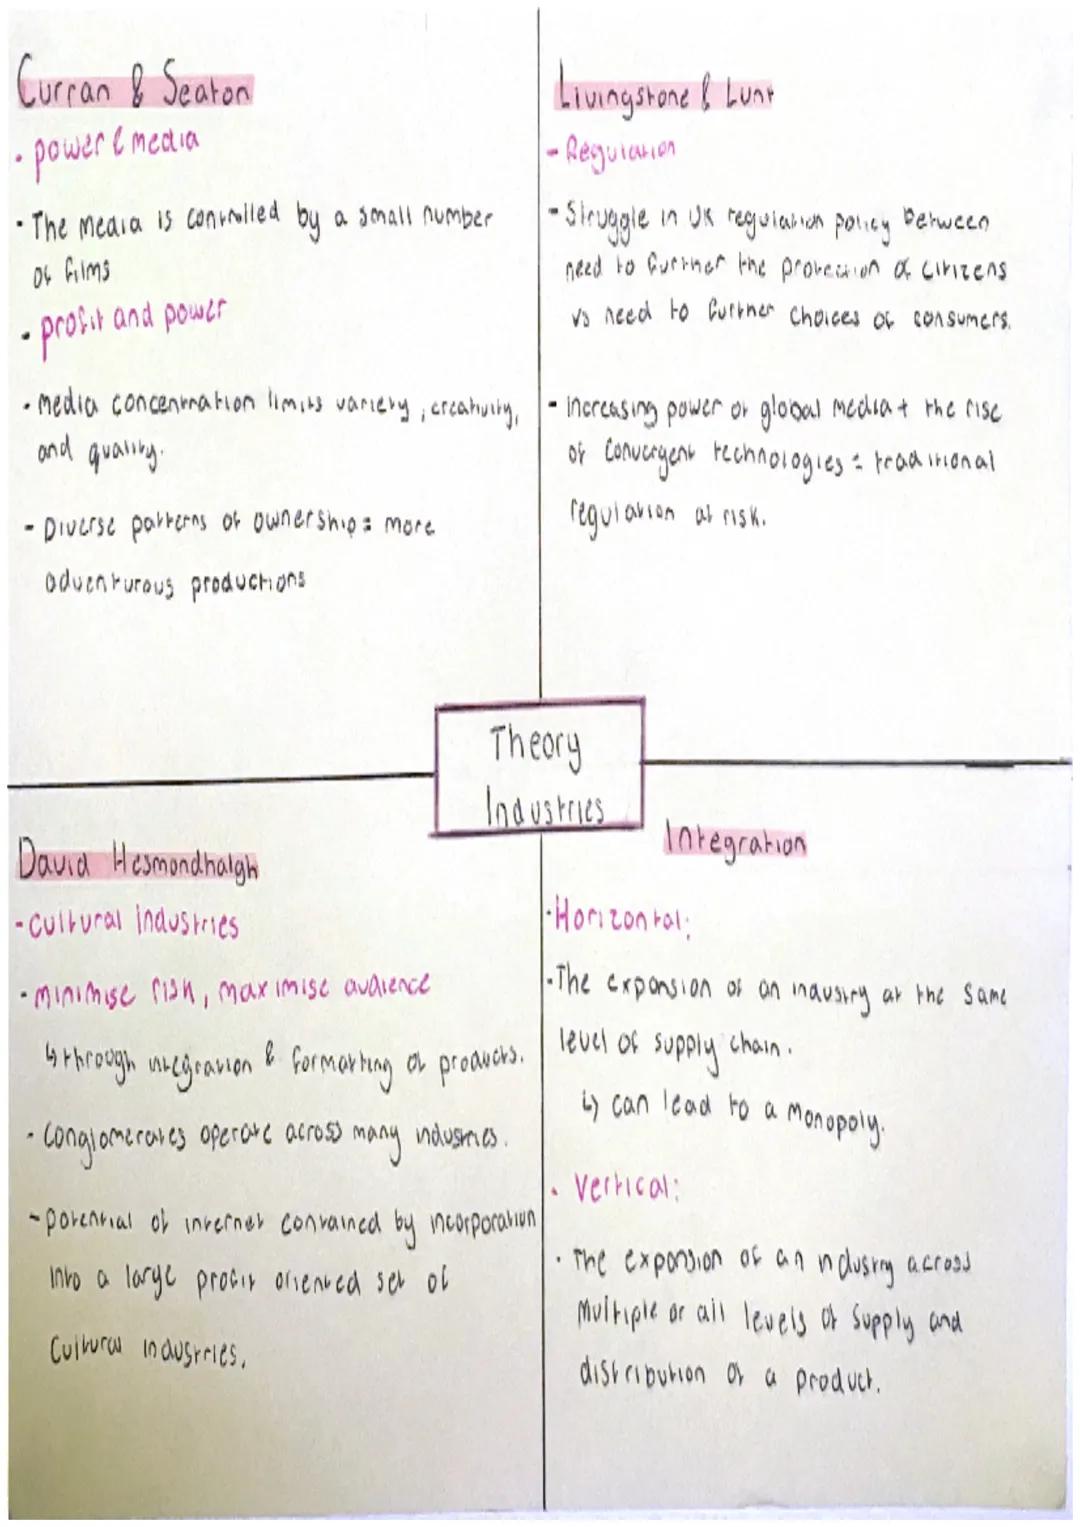 Curran & Seaton
· power & media
· The media is controlled by a small number
of films
· profit and power
· Media concentration limits variety, creativity,
and quality.
- Diverse patterns of ownership = more
adventurous productions
Livingstone & Lunt
- Regulation
- Struggle in UK regulation policy between
need to further the protection of citizens
vs need to further choices of consumers.
- increasing power of global media + the rise
of convergent technologies = traditional
regulation at risk.
Theory
Industries
David Hesmondhalgh
- cultural industries
- minimise risk, maximise audience
↳ through integration & formatting of products.
- Conglomerates operate across many industries.
- potential of internet contained by incorporation
into a large profit oriented set of
Cultural industries.
Integration
· Horizontal:
· The expansion of an industry at the same
level of supply chain.
↳ can lead to a Monopoly.
· Vertical:
· The expansion of an industry across
multiple or all levels of supply and
distribution of a product.